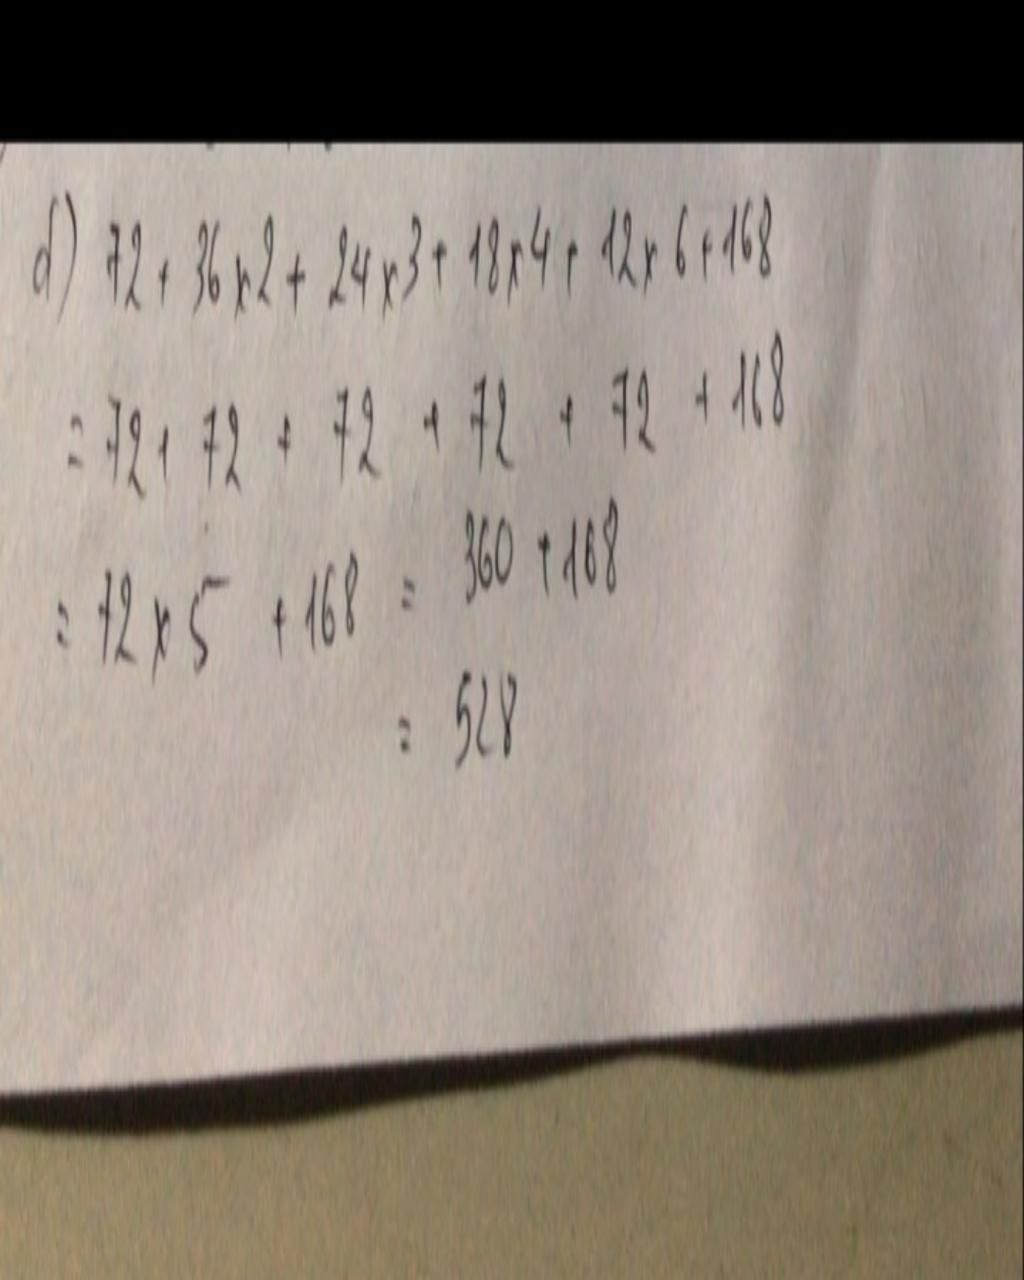 d) 72 + 36 x 2 + 24 x 3 + 18 x 4 + 12 x 6 + 168
= 72 + 72 + 72 + 72 + 72 + 168
= 72 x 5 + 168 = 360 + 168
= 528